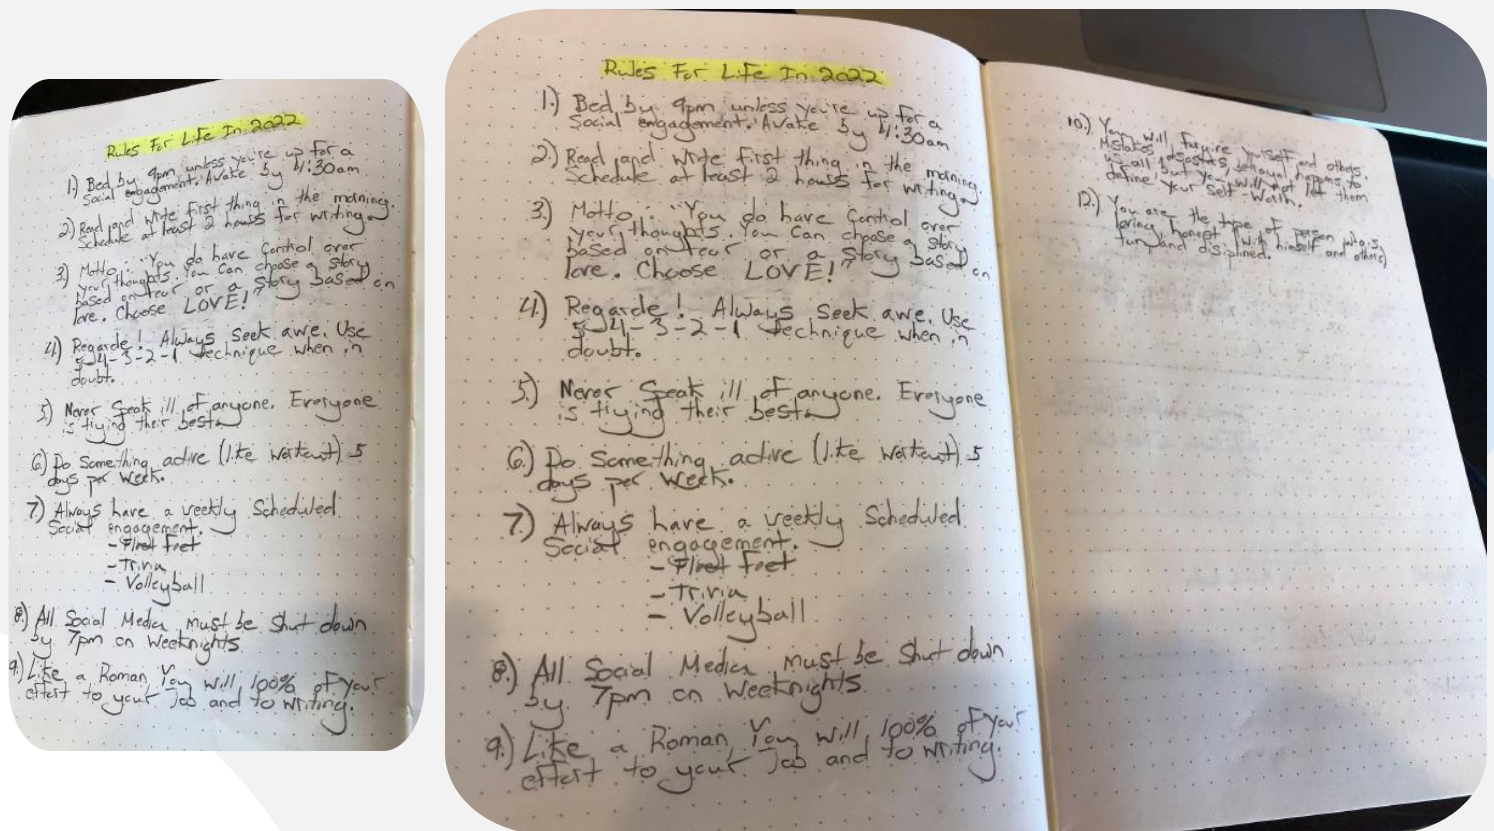 Rules For Life In 2022
1.) Bed by 9pm unless you're up for a
Social engagement. Awake by 4:30am
2.) Read and write first thing in the morning.
Schedule at least 2 hours for writing
3.) Motto: "You do have Control over
your thoughts. You Can choose a story
based on fear or a story based on
love. Choose LOVE!"
4.) Regarde! Always Seek awe. Use
5-4-3-2-1 technique when in
doubt.
5.) Never Speak ill of anyone. Everyone
is trying their best.
6.) Do Something active (like workout) 5
days per week.
7.) Always have a weekly Scheduled
Social engagement.
- Fleet Feet
- Trivia
- Volleyball
8.) All Social Media must be Shut down
by 7pm on Weeknights
9.) Like a Roman, You will 100% of your
effort to your Job and to writing.
Rules For Life In 2022
1.) Bed by 9pm unless you're up for a
Social engagement. Awake by 4:30am
2.) Read and write first thing in the morning.
Schedule at least 2 hours for writing
3.) Motto: "You do have Control over
your thoughts. You Can choose a story
based on fear or a story based on
love. Choose LOVE!"
4.) Regarde! Always Seek awe. Use
5-4-3-2-1 technique when in
doubt.
5.) Never Speak ill of anyone. Everyone
is trying their best.
6.) Do Something active (like workout) 5
days per week.
7.) Always have a weekly Scheduled
Social engagement.
- Fleet Feet
- Trivia
- Volleyball
8.) All Social Media must be Shut down
by 7pm on Weeknights
9.) Like a Roman, You will 100% of your
effort to your Job and to writing.
10.) You will forgive yourself and others.
Mistakes, disasters, betrayal happens to
us all, but you will not let them
define your self-worth.
12.) You are the type of person who is,
loving, honest (with himself and others)
fun, and disiplined.